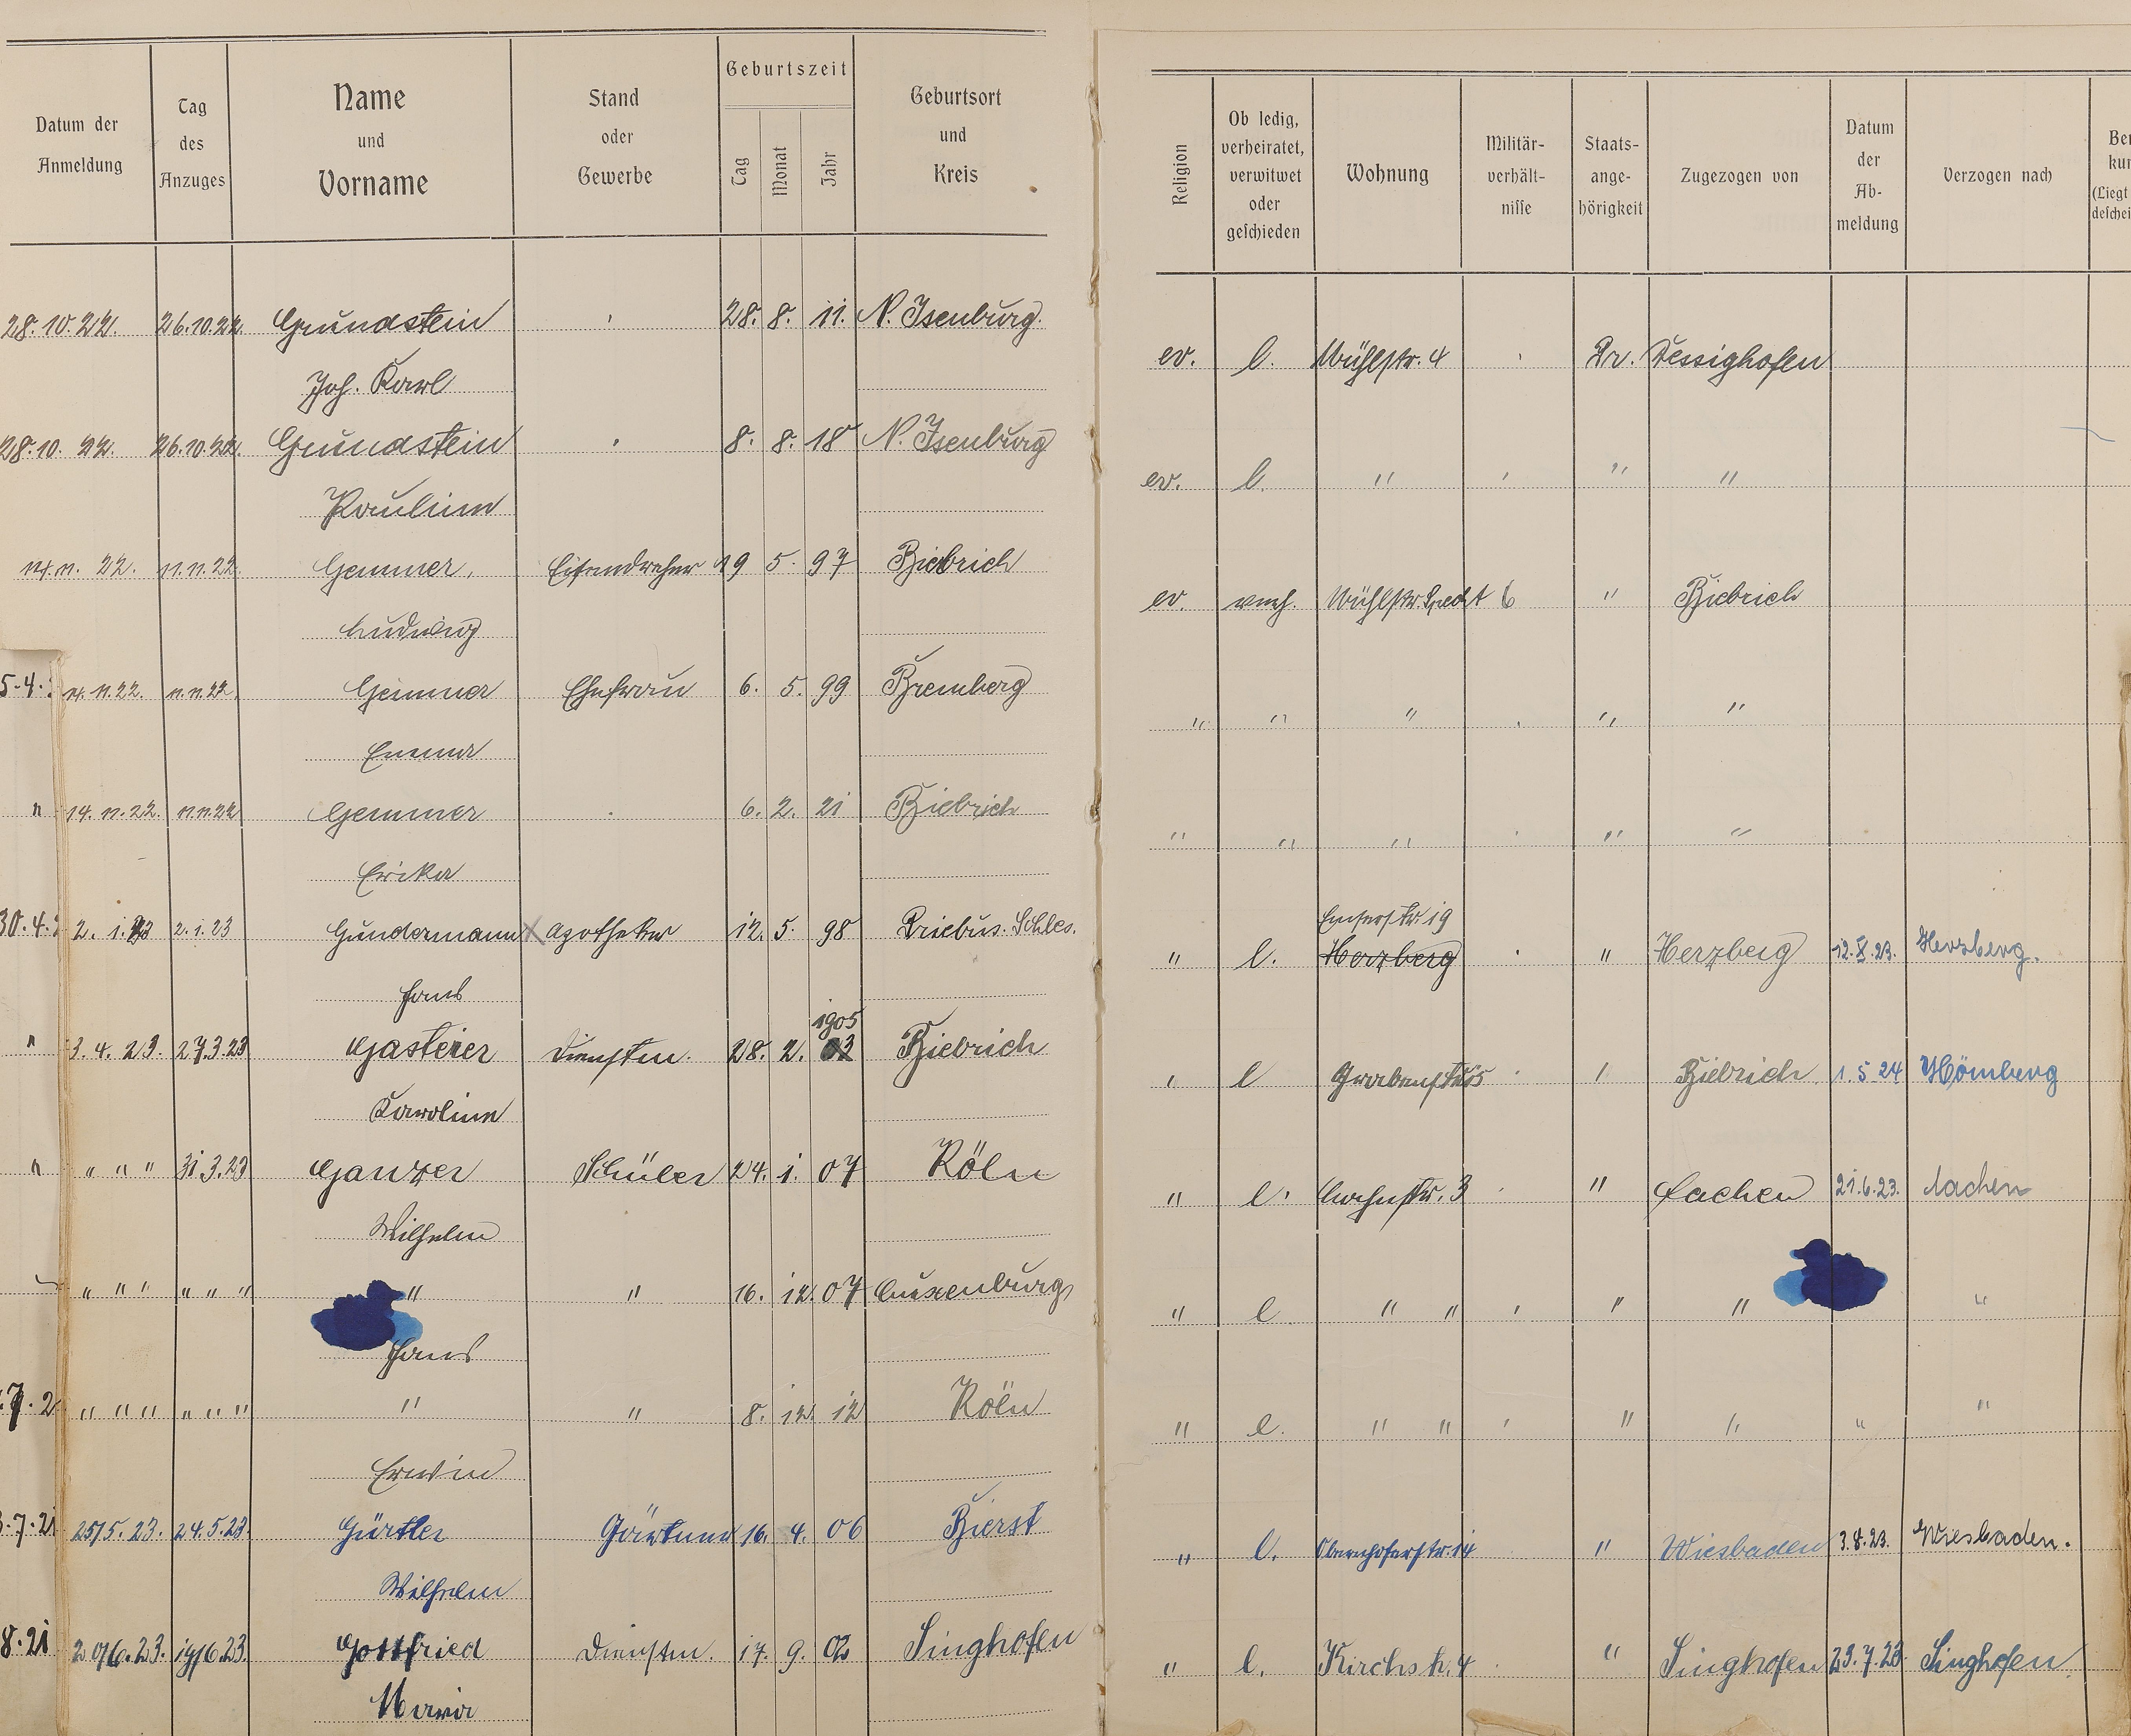 Datum der Anmeldung | Tag des Anzuges | Name und Vorname | Stand oder Gewerbe | Geburtszeit Tag Monat Jahr | Geburtsort und Kreis | Religion | Ob ledig, verheiratet, verwitwet oder geschieden | Wohnung | Militär-verhält-nisse | Staats-ange-hörigkeit | Zugezogen von | Datum der Ab-meldung | Verzogen nach
28.10.22. 26.10.22. Grundstein 28. 8. 11. N. Isenburg. ev. l. Mühlstr. 4 Pr. Dessighofen
Joh. Karl
28.10.22. 26.10.22. Grundstein 8. 8. 18 N. Isenburg ev. l. " " "
Pauline
14.11.22. 11.11.22. Gemmer, Eisendreher 19 5. 97 Biebrich ev. verh. Mühlstr. 6 " Biebrich
Ludwig
5-4. 14.11.22. 11.11.22. Gemmer Ehefrau 6. 5. 99 Bremberg " " " " "
Emma
" 14.11.22. 11.11.22 Gemmer 6. 2. 21 Biebrich " " " " "
Erika
Emserstr. 19
30.4. 2.1.23 2.1.23 Gundermann X Apotheker 12. 5. 98 Priebus. Schles. " l. Herzberg " Herzberg 12.X.23. Herzberg.
Hans
1905
" 3.4.23. 27.3.23 Gasteier Dienstm. 28. 2. 03 Biebrich " l Grabenstr. 5 " Biebrich 1.5.24 Hömberg
Karoline
" " " " 31.3.23 Ganzer Schüler 24. 1. 07 Köln " l. Lahnstr. 3 " Aachen 21.6.23. Aachen
Wilhelm
" " " " " " " " 16. 12. 07 Luxenburg " l. " " " " "
Hans
7.2 " " " " " " " " 8. 12. 12 Köln " l. " " " " " "
Erwin
3.7.21 25/5.23. 24.5.23. Gürtler Gärtner 16. 4. 06 Bierst " l. Obernhoferstr. 14 " Wiesbaden 3.8.23. Wiesbaden.
Wilhelm
8.21 20/6.23. 19/6.23. Gottfried Dienstm. 17. 9. 02 Singhofen " l. Kirchstr. 4 " Singhofen 23.7.23. Singhofen.
Maria